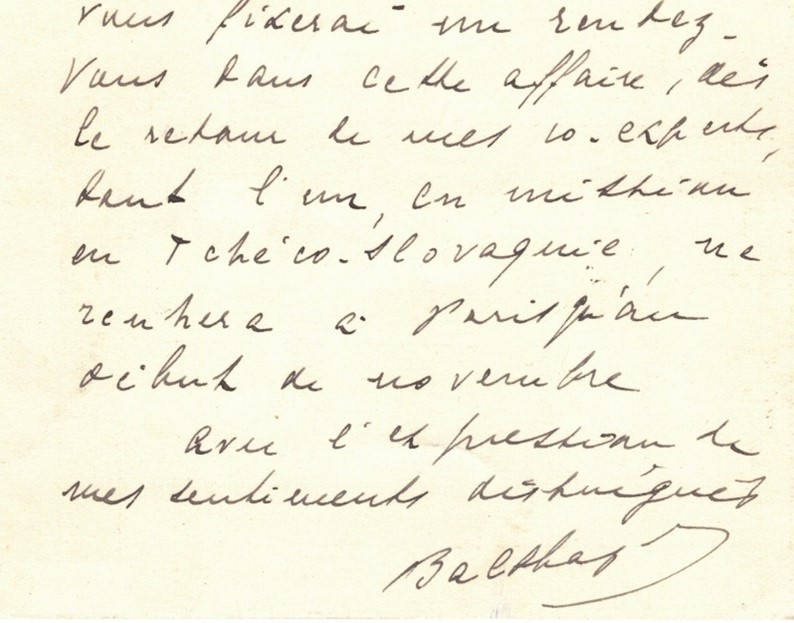 vous fixerai un rendez-
vous dans cette affaire, dès
le retour de mes co-experts,
dont l'un, en mission
en Tchéco-Slovaquie, ne
rentrera à Paris qu'au
début de novembre
avec l'expression de
mes sentiments distingués
Balthaz